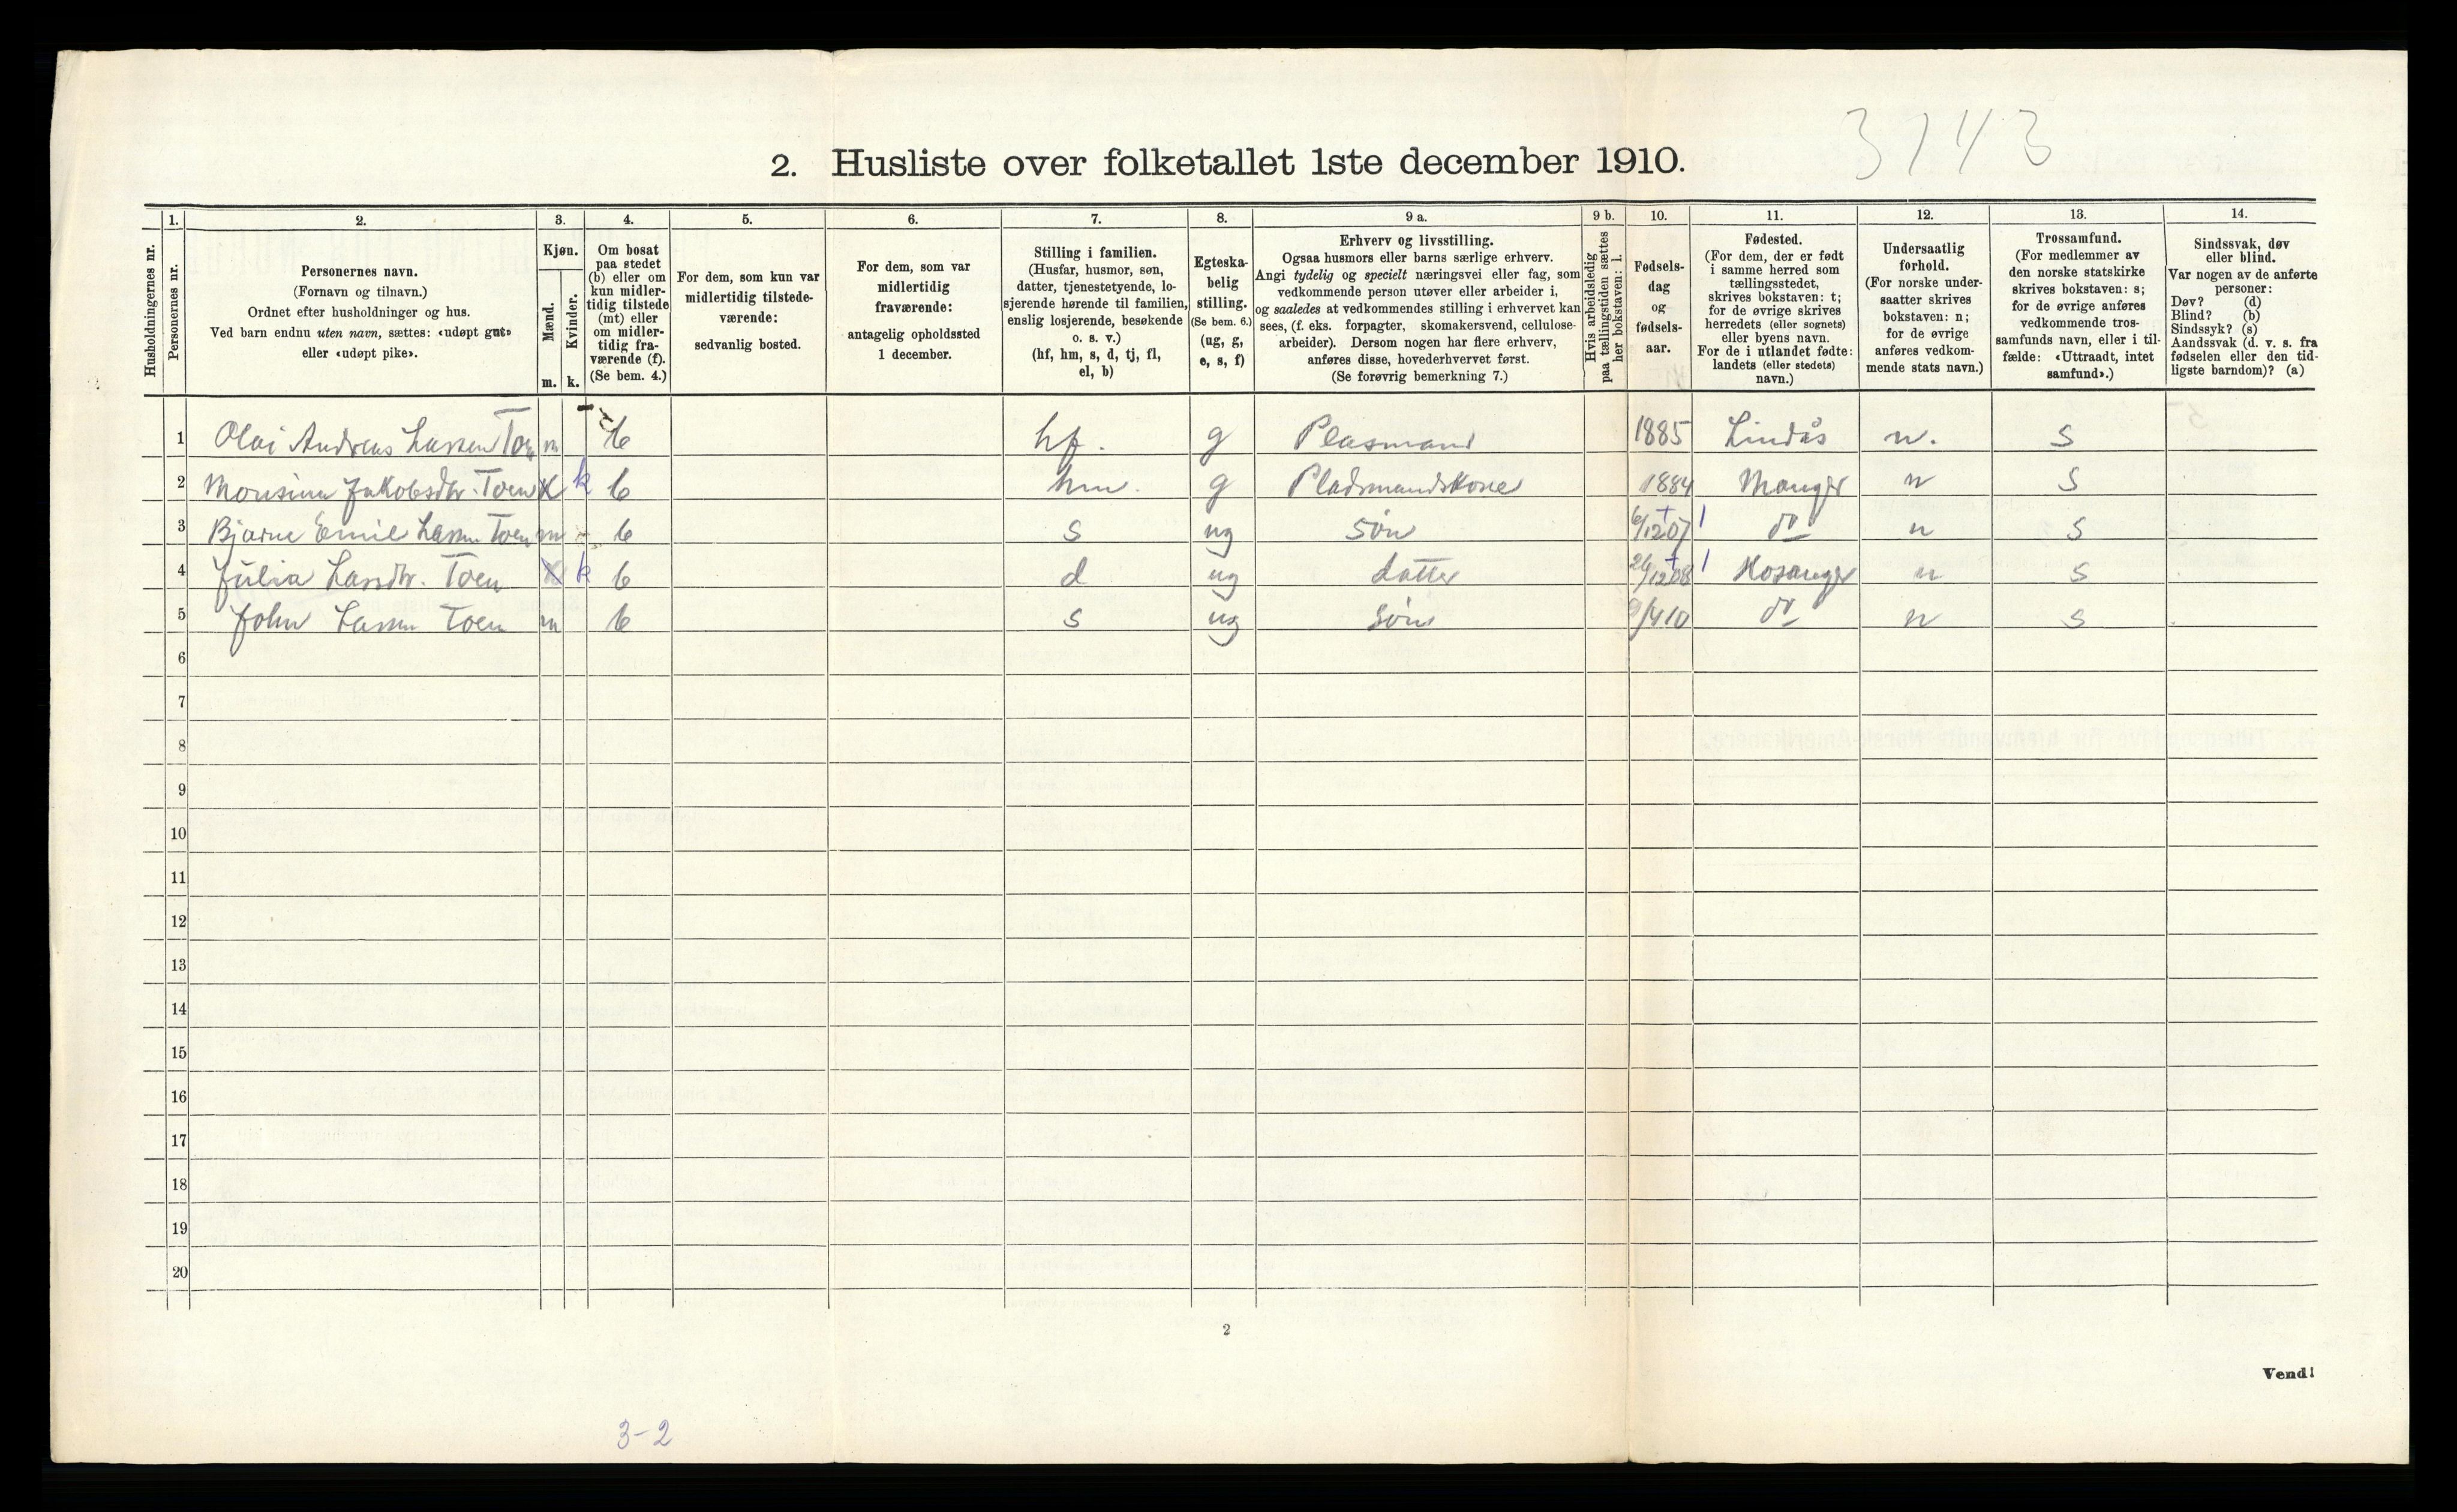 3143
2. Husliste over folketallet 1ste december 1910.
Husholdningernes nr.
1.
Personernes nr.
2.
Personernes navn.
(Fornavn og tilnavn.)
Ordnet efter husholdninger og hus.
Ved barn endnu uten navn, sættes: «udøpt gut»
eller «udøpt pike».
3.
Kjøn.
Mænd.
Kvinder.
m. k.
4.
Om bosat
paa stedet
(b) eller om
kun midler-
tidig tilstede
(mt) eller
om midler-
tidig fra-
værende (f).
(Se bem. 4.)
5.
For dem, som kun var
midlertidig tilstede-
værende:
sedvanlig bosted.
6.
For dem, som var
midlertidig
fraværende:
antagelig opholdssted
1 december.
7.
Stilling i familien.
(Husfar, husmor, søn,
datter, tjenestetyende, lo-
sjerende hørende til familien,
enslig losjerende, besøkende
o. s. v.)
(hf, hm, s, d, tj, fl,
el, b)
8.
Egteska-
belig
stilling.
(Se bem. 6.)
(ug, g,
e, s, f)
9 a.
Erhverv og livsstilling.
Ogsaa husmors eller barns særlige erhverv.
Angi tydelig og specielt næringsvei eller fag, som
vedkommende person utøver eller arbeider i,
og saaledes at vedkommendes stilling i erhvervet kan
sees, (f. eks. forpagter, skomakersvend, cellulose-
arbeider). Dersom nogen har flere erhverv,
anføres disse, hovederhvervet først.
(Se forøvrig bemerkning 7.)
9 b.
Hvis arbeidsledig
paa tællingstiden sættes
her bokstaven: l.
10.
Fødsels-
dag
og
fødsels-
aar.
11.
Fødested.
(For dem, der er født
i samme herred som
tællingsstedet,
skrives bokstaven: t;
for de øvrige skrives
herredets (eller sognets)
eller byens navn.
For de i utlandet fødte:
landets (eller stedets)
navn.)
12.
Undersaatlig
forhold.
(For norske under-
saatter skrives
bokstaven: n;
for de øvrige
anføres vedkom-
mende stats navn.)
13.
Trossamfund.
(For medlemmer av
den norske statskirke
skrives bokstaven: s;
for de øvrige anføres
vedkommende tros-
samfunds navn, eller i til-
fælde: «Uttraadt, intet
samfund».)
14.
Sindssvak, døv
eller blind.
Var nogen av de anførte
personer:
Døv? (d)
Blind? (b)
Sindssyk? (s)
Aandssvak (d. v. s. fra
fødselen eller den tid-
ligste barndom)? (a)
1 Olai Andreas Lassen Toen m b hf. g Plasmand 1885 Lindås n. s
2 Monsine Jakobsdtr. Toen k b hm. g Pladsmandskone 1884 Manger n s
3 Bjarne Emil Lassen Toen m b s ug søn 6/12 07 do n s
4 Julia Lassdtr. Toen k b d ug datter 26/12 08 Hosanger n s
5 John Lassen Toen m b s ug søn 9/4 10 do n s
6
7
8
9
10
11
12
13
14
15
16
17
18
19
20
2
Vend!
3-2